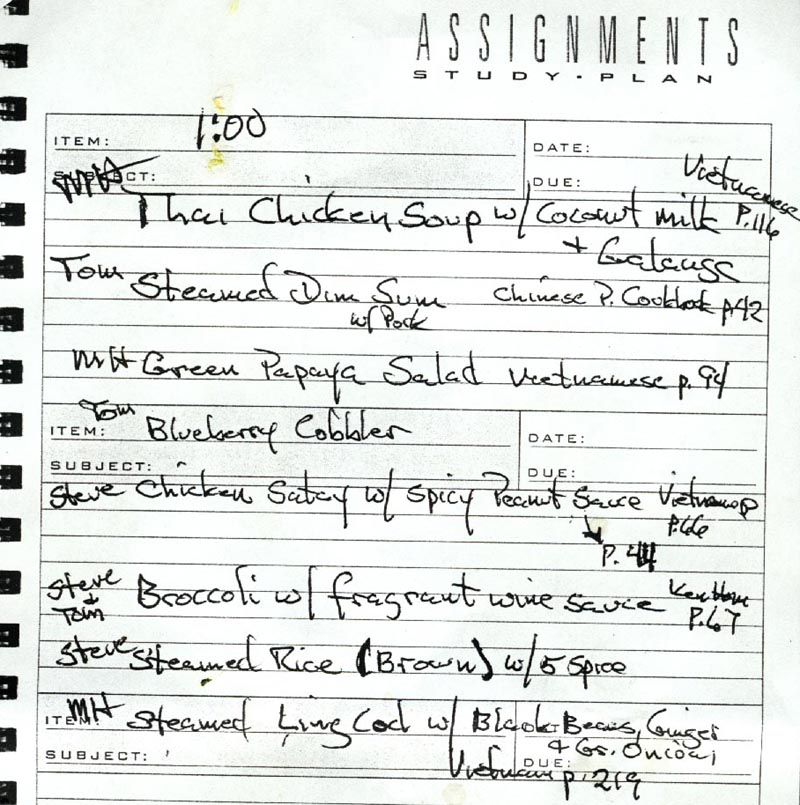 ASSIGNMENTS
STUDY · PLAN
ITEM: 1:00 DATE:
SUBJECT: DUE: Vietnamese
MH Thai Chicken Soup w/ Coconut milk P.116
+ Galanga
Tom Steamed Dim Sum Chinese P. Cookbook p42
w/ Pork
MH Green Papaya Salad Vietnamese p.94
Tom
ITEM: Blueberry Cobbler DATE:
SUBJECT: DUE:
Steve Chicken Satay w/ Spicy Peanut Sauce
P.66
P.44
Steve + Tom Broccoli w/ fragrant wine sauce Ken Hom
P.67
Steve Steamed Rice (Brown) w/ 5 Spice
ITEM MH Steamed Ling Cod w/ Black Beans, Ginger
+ Gr. Onions
SUBJECT: DUE:
p.219